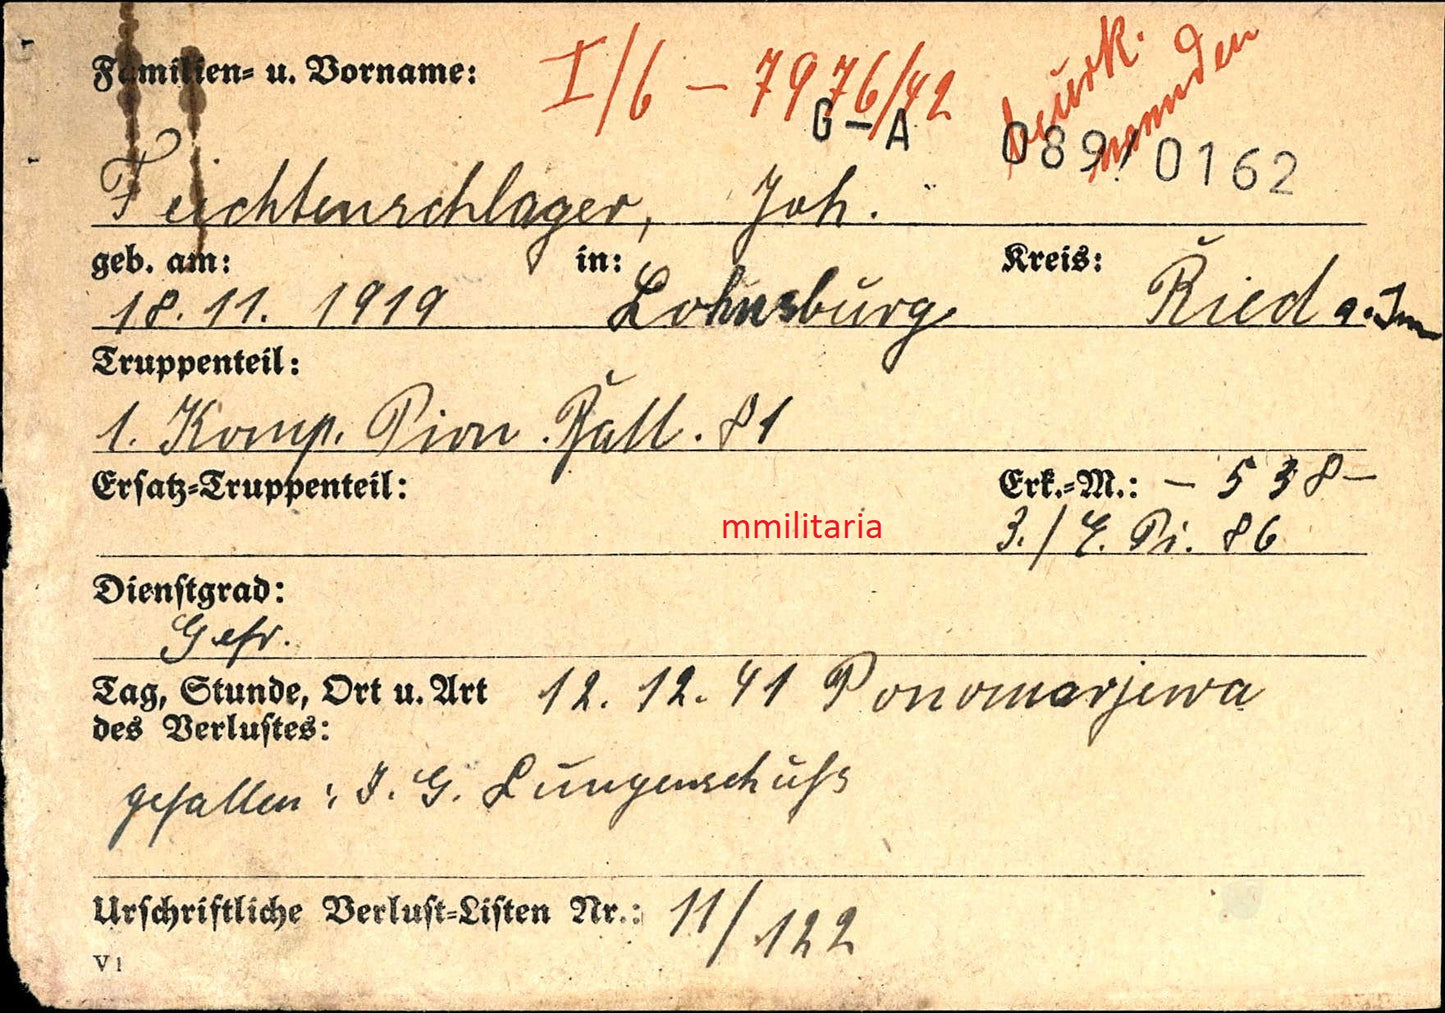 Familien- u. Vorname:
I/6 - 7976/42
beurk.
G-A
089/0162
Feichtenschlager, Joh.
geb. am: in: Kreis:
18. 11. 1919 Lohnsburg Ried a. Inn
Truppenteil:
1. Komp. Pion. Batl. 81
Ersatz-Truppenteil: Erk.-M.: - 538 -
mmilitaria
3./E. Pi. 86
Dienstgrad:
Gefr.
Tag, Stunde, Ort u. Art 12. 12. 41 Ponomarjewa
des Verlustes:
gefallen: I. G. Lungenschuß
Urschriftliche Verlust-Listen Nr.: 11/122
V 1